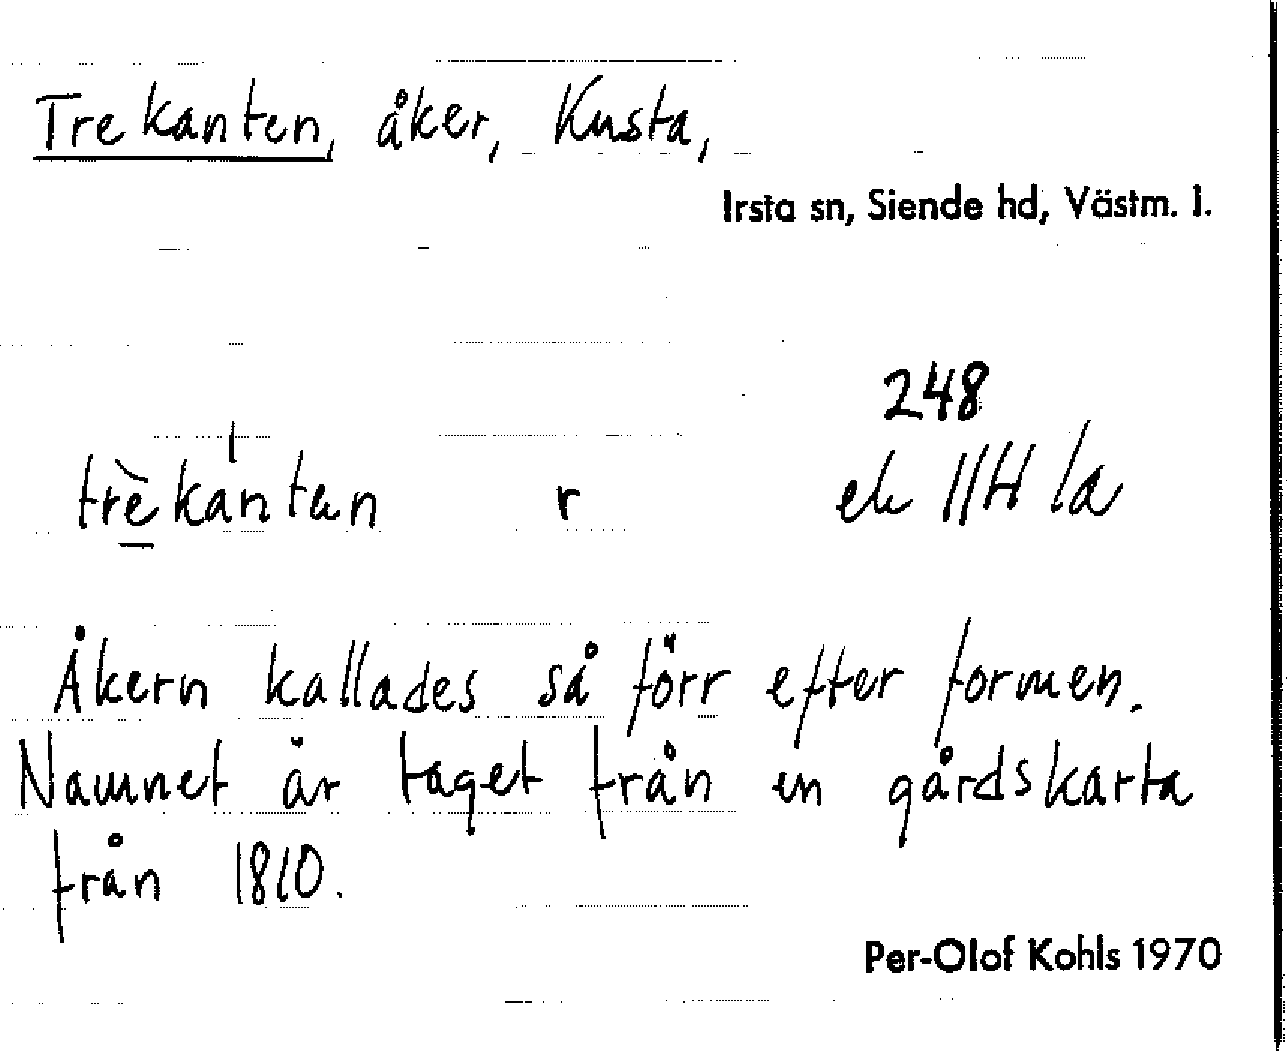 Trekanten, åker, Kusta,
Irsta sn, Siende hd, Västm. l.
248
trèkánten r ek 11H 1a
Åkern kallades så förr efter formen.
Namnet är taget från en gårdskarta
från 1810.
Per-Olof Kohls 1970